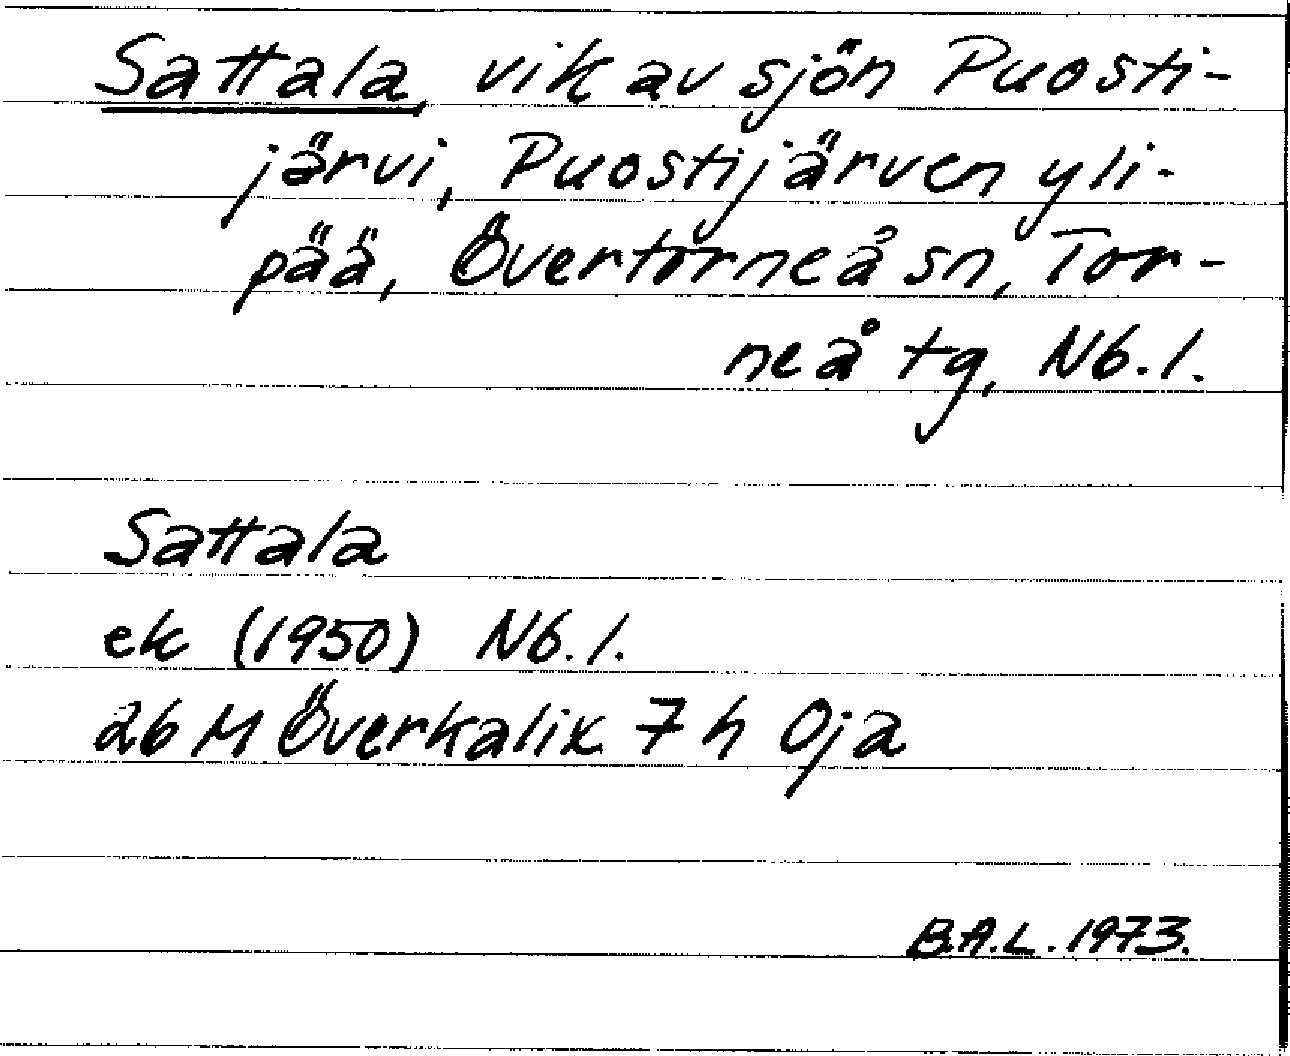 Sattala, vik av sjön Puosti-
järvi, Puostijärven yli-
pää, Övertorneå sn, Tor-
neå tg, Nb. l.
Sattala
ek (1950) Nb. l.
26 M Överkalix 7 h Oja
B.A.L. 1973.